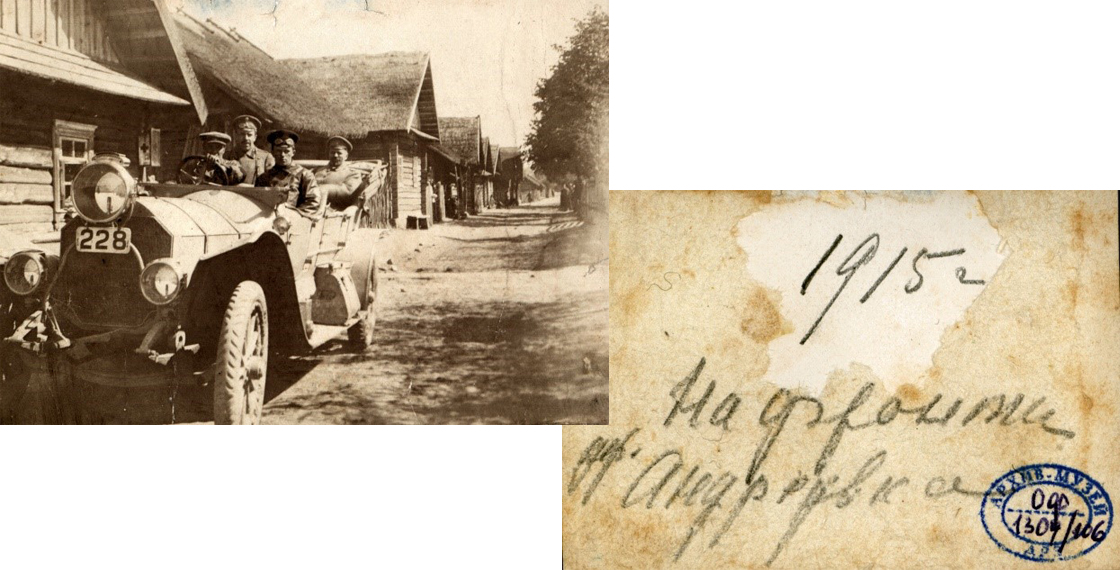 228
1915 г
На фронте
Андреевка
АРХИВ-МУЗЕЙ
Оф
1304/106